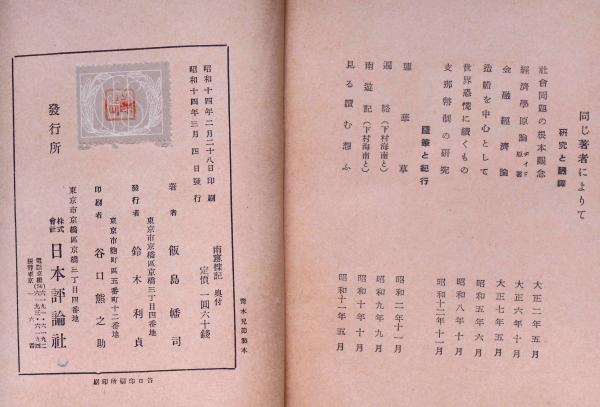 同じ著者によりて
研究と飜譯
社會問題の根本觀念 大正二年五月
經濟學原論 原著 大正六年十月
金融經濟論 大正七年五月
造船を中心として 昭和五年六月
世界恐慌に續くもの 昭和八年十月
支那幣制の研究 昭和十一年十一月
隨筆と紀行
蓮華草 昭和二年十一月
遍路(下村海南と) 昭和九年九月
南遊記(下村海南と) 昭和十年十月
見る讀む想ふ 昭和十一年五月
青木兄弟製本
南窓採記 奥付
定價一圓六十錢
著者 飯島幡司
東京市京橋區京橋三丁目四番地
發行者 鈴木利貞
東京市麴町區五番町十二番地
印刷者 谷口熊之助
昭和十四年二月二十八日印刷
昭和十四年三月四日發行
發行所
東京市京橋區京橋三丁目四番地
株式會社 日本評論社
谷口印刷所印刷